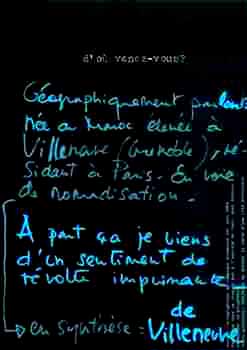 d'où venez-vous?
Géographiquement parlant
née au Maroc élevée à
Villeneuve (Grenoble), ré-
sidant à Paris. En voie
de nomadisation.
A part ça je viens
d'un sentiment de
révolte imprimante
de
en synthèse = Villeneuve